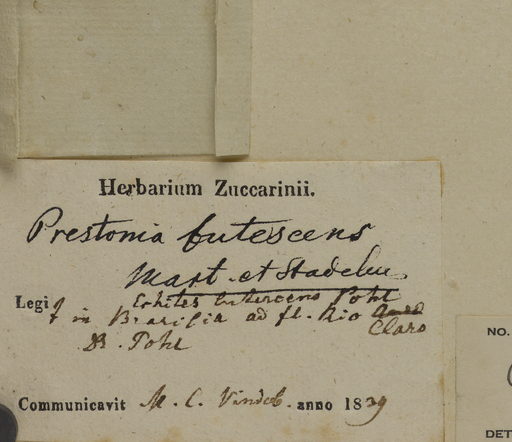 Herbarium Zuccarinii.
Prestonia lutescens
Mart. et Stadelm.
Echites lutescens Pohl
Legit in Brasilia ad fl. Rio
Claro
D. Pohl
Communicavit M. C. Vindob. anno 1839
NO.
DET